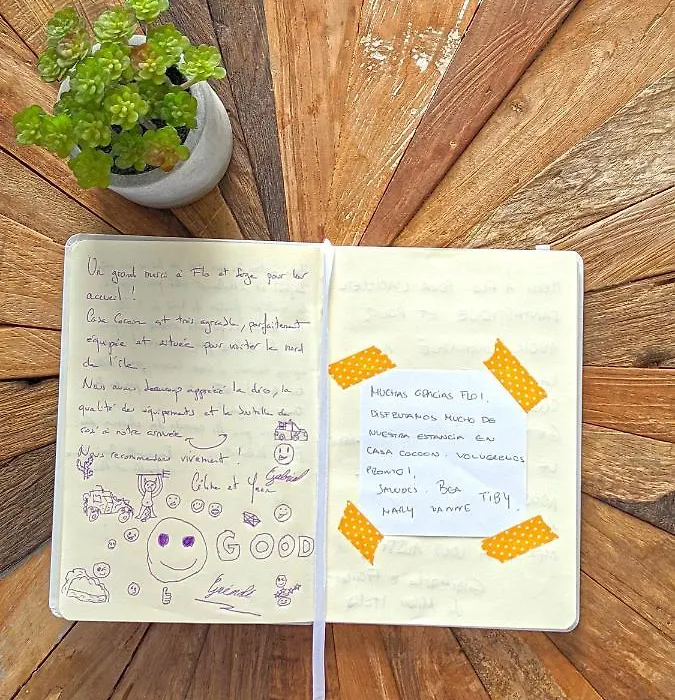 Un grand merci à Flo et Serge pour leur
accueil !
Casa Cocoon est très agréable, parfaitement
équipée et située pour visiter le nord
de l'île.
Nous avons beaucoup apprécié la déco, la
qualité des équipements et la bouteille de
rosé à notre arrivée
Nous recommandons vivement !
Céline et Yann
Gabriel
GOOD
MUCHAS GRACIAS FLO!,
DISFRUTAMOS MUCHO DE
NUESTRA ESTANCIA EN
CASA COCOON. VOLVEREMOS
PRONTO!,
SALUDOS. BEA TIBY
MARY DANNE